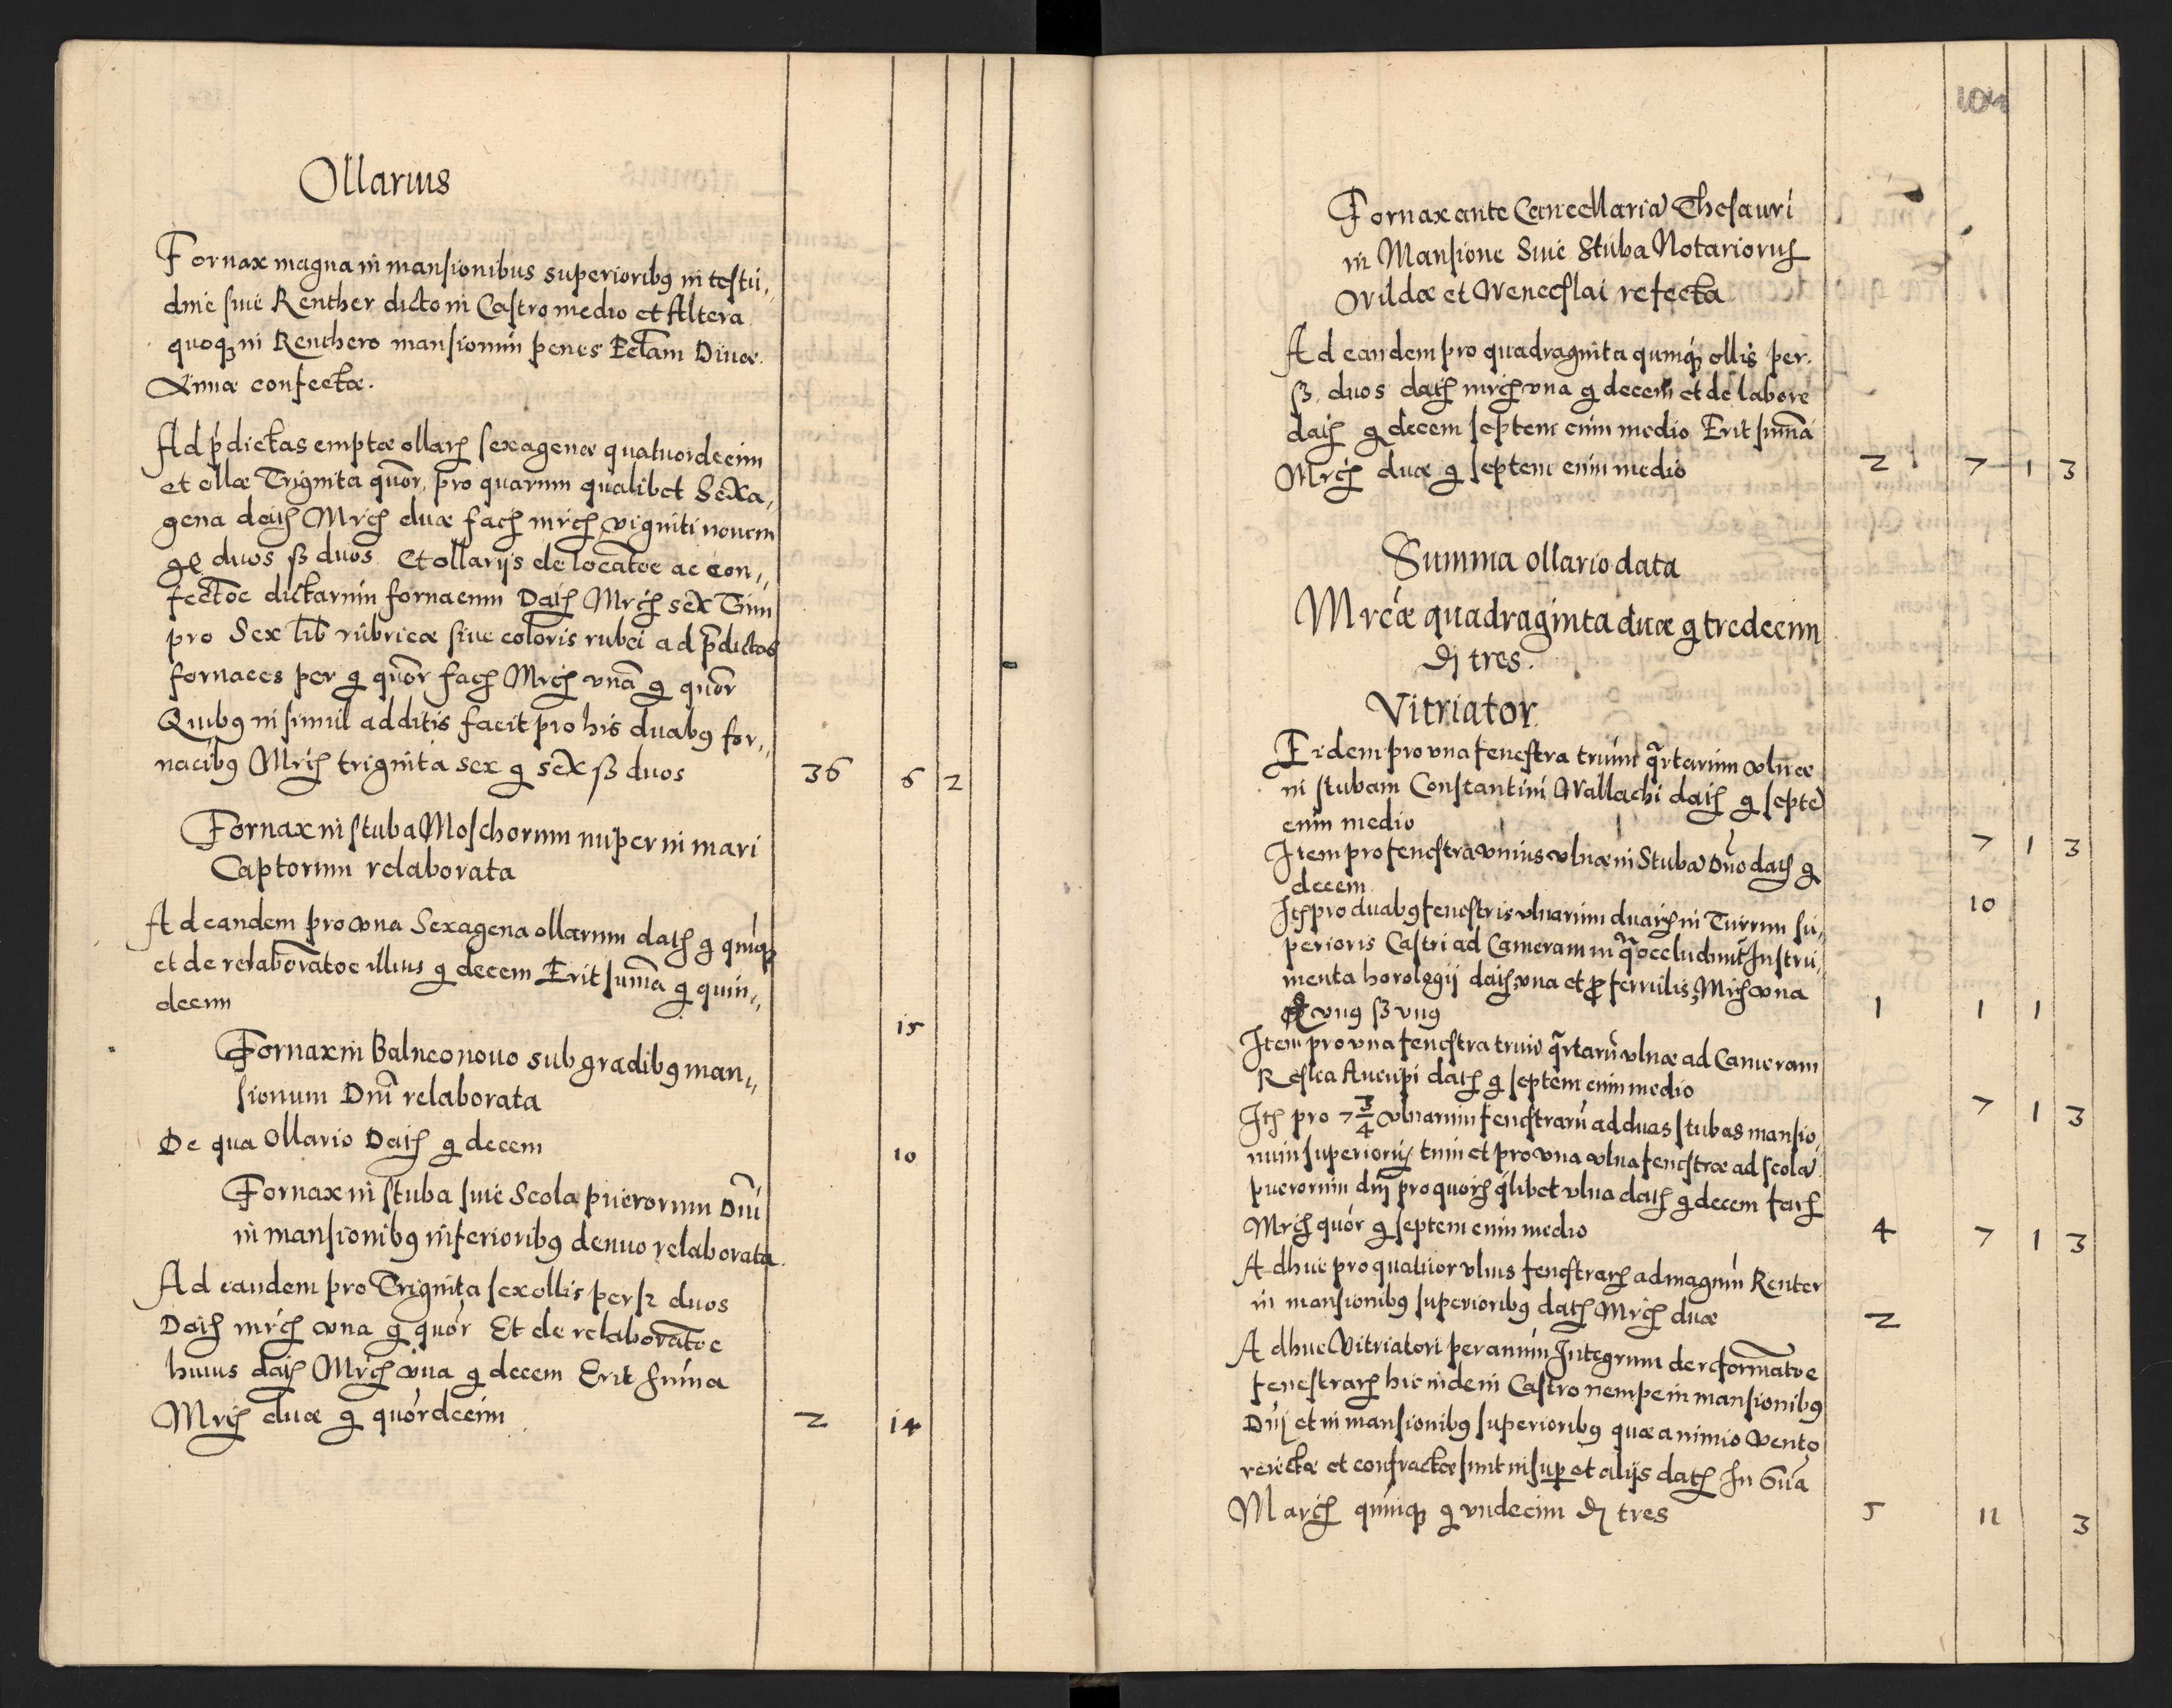 Ollarius
Fornax magna in mansionibus superioribꝰ in testu,,
dine siue Renther dicto in Castro medio et Altera
quoqꝫ in Renthero mansionum penes Ecclam Diuæ
Annæ confectæ.
Ad pdictas emptæ ollarꝝ sexagenæ quatuordecim
et ollæ Triginta quor, pro quarum qualibet Sexa,,
gena datꝫ Mrcꝫ duæ facꝫ mrcꝫ viginti nouem
gr duos ß duos Et ollarijs de locatoe ac con,,
fectoe dictarum fornacum Datꝫ Mrcꝫ sex Tum
pro Sex lib rubricæ siue coloris rubei ad pdictas
fornaces per g quor facꝫ Mrcꝫ vna g quor
Quibꝰ in simul additis facit pro his duabꝰ for,,
nacibꝰ Mrcꝫ triginta sex g sex ß duos 36 6 2
Fornax in stuba Moschorum nuper in mari
Captorum relaborata
Ad eandem pro vna Sexagena ollarum datꝫ g quiqꝫ
et de relaboratoe illius g decem Erit suma g quin,,
decim 15
Fornax in Balneo nouo sub gradibꝰ man,,
sionum Dni relaborata
De qua Ollario Datꝫ g decem 10
Fornax in stuba siue Scola puerorum Dni
in mansionibꝰ inferioribꝰ denuo relaborata.
Ad eandem pro Triginta sex ollis per ß duos
Datꝫ mrcꝫ vna g quor Et de relaboratoe
huius datꝫ Mrcꝫ vna g decem Erit suma
Mrcꝫ duæ g quordecim 2 14
104
Fornax ante Cancellaria Thesauri
in Mansione Siue Stuba Notarioruꝫ
Wildæ et Wenceslai refecta
Ad eandem pro quadraginta quinqꝫ ollis per
ß duos datꝫ mrcꝫ vna g decem et de labore
datꝫ g decem septem cum medio Erit suma
Mrcꝫ duæ g septem cum medio 2 7 1 3
Summa ollario data
Mrcæ quadraginta duæ g tredecim
₰ tres.
Vitriator
Eidem pro vna fenestra trium qrtarum vlnæ
in stubam Constantini Wallachi datꝫ g septe
cum medio 7 1 3
Item pro fenestra vnius vlnæ in Stuba Dno datꝫ g
decem 10
Itꝫ pro duabꝰ fenestris vlnarum duarꝝ in Turrim su,,
perioris Castri ad Cameram in qa occluduntʳ Instru,,
menta horologij datꝫ vna et p ferrulis, Mrcꝫ vna
gr vnꝰ ß vnꝰ 1 1 1
Item pro vna fenestra triu qrtaru vlnæ ad Cameram
Reslea Aucupi datꝫ g septem cum medio 7 1 3
Itꝫ pro 7 3/4 vlnarum fenestraru ad duas stubas mansio,,
num superioruꝫ tum et pro vna vlna fenestræ ad scola
puerorum dnj pro quorꝫ qlibet vlna datꝫ g decem facꝫ
Mrcꝫ quor g septem cum medio 4 7 1 3
Adhuc pro quatuor vlnis fenestrarꝝ ad magnu Renter
in mansionibꝰ superioribꝰ datꝫ Mrcꝫ duæ 2
Adhuc Vitriatori per annum Integrum de reformatoe
fenestrarꝝ hic inde in Castro nempe in mansionibꝰ
Dnj et in mansionibꝰ superioribꝰ quæ a nimio Vento
reiectæ et confractæ sunt insup et alijs datꝫ In Sua
Marcꝫ quinqꝫ g vndecim ₰ tres 5 11 3